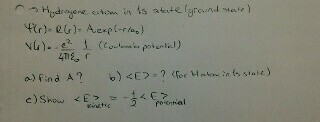 → Hydrogene atom in 1s state (ground state)
Ψ(r) = R(r) = A.exp(-r/a₀)
V(r) = - e²/4πε₀ 1/r (Coulomb potential)
a) Find A? b) <E> = ? (for H atom in 1s state)
c) Show <E>kinetic = - 1/2 <E>potential